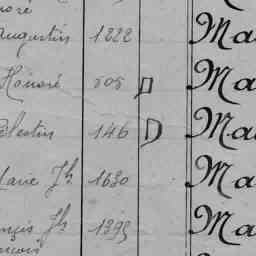 oré
Augustin 1222 Ma
Honoré 505 D Ma
élestin 146 D Ma
Marie Jh 1630 Ma
ançois Jh 1395 Ma